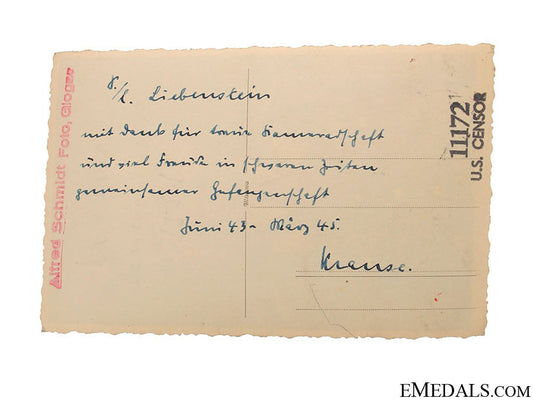 Liebenstein
mit Dank für treue Kameradschaft
und viel Freude in schweren Zeiten
gemeinsamer Gefangenschaft
Juni 43 - März 45.
Krause.
Alfred Schmidt Foto, Glogau
11172
U.S. CENSOR
EMEDALS.COM